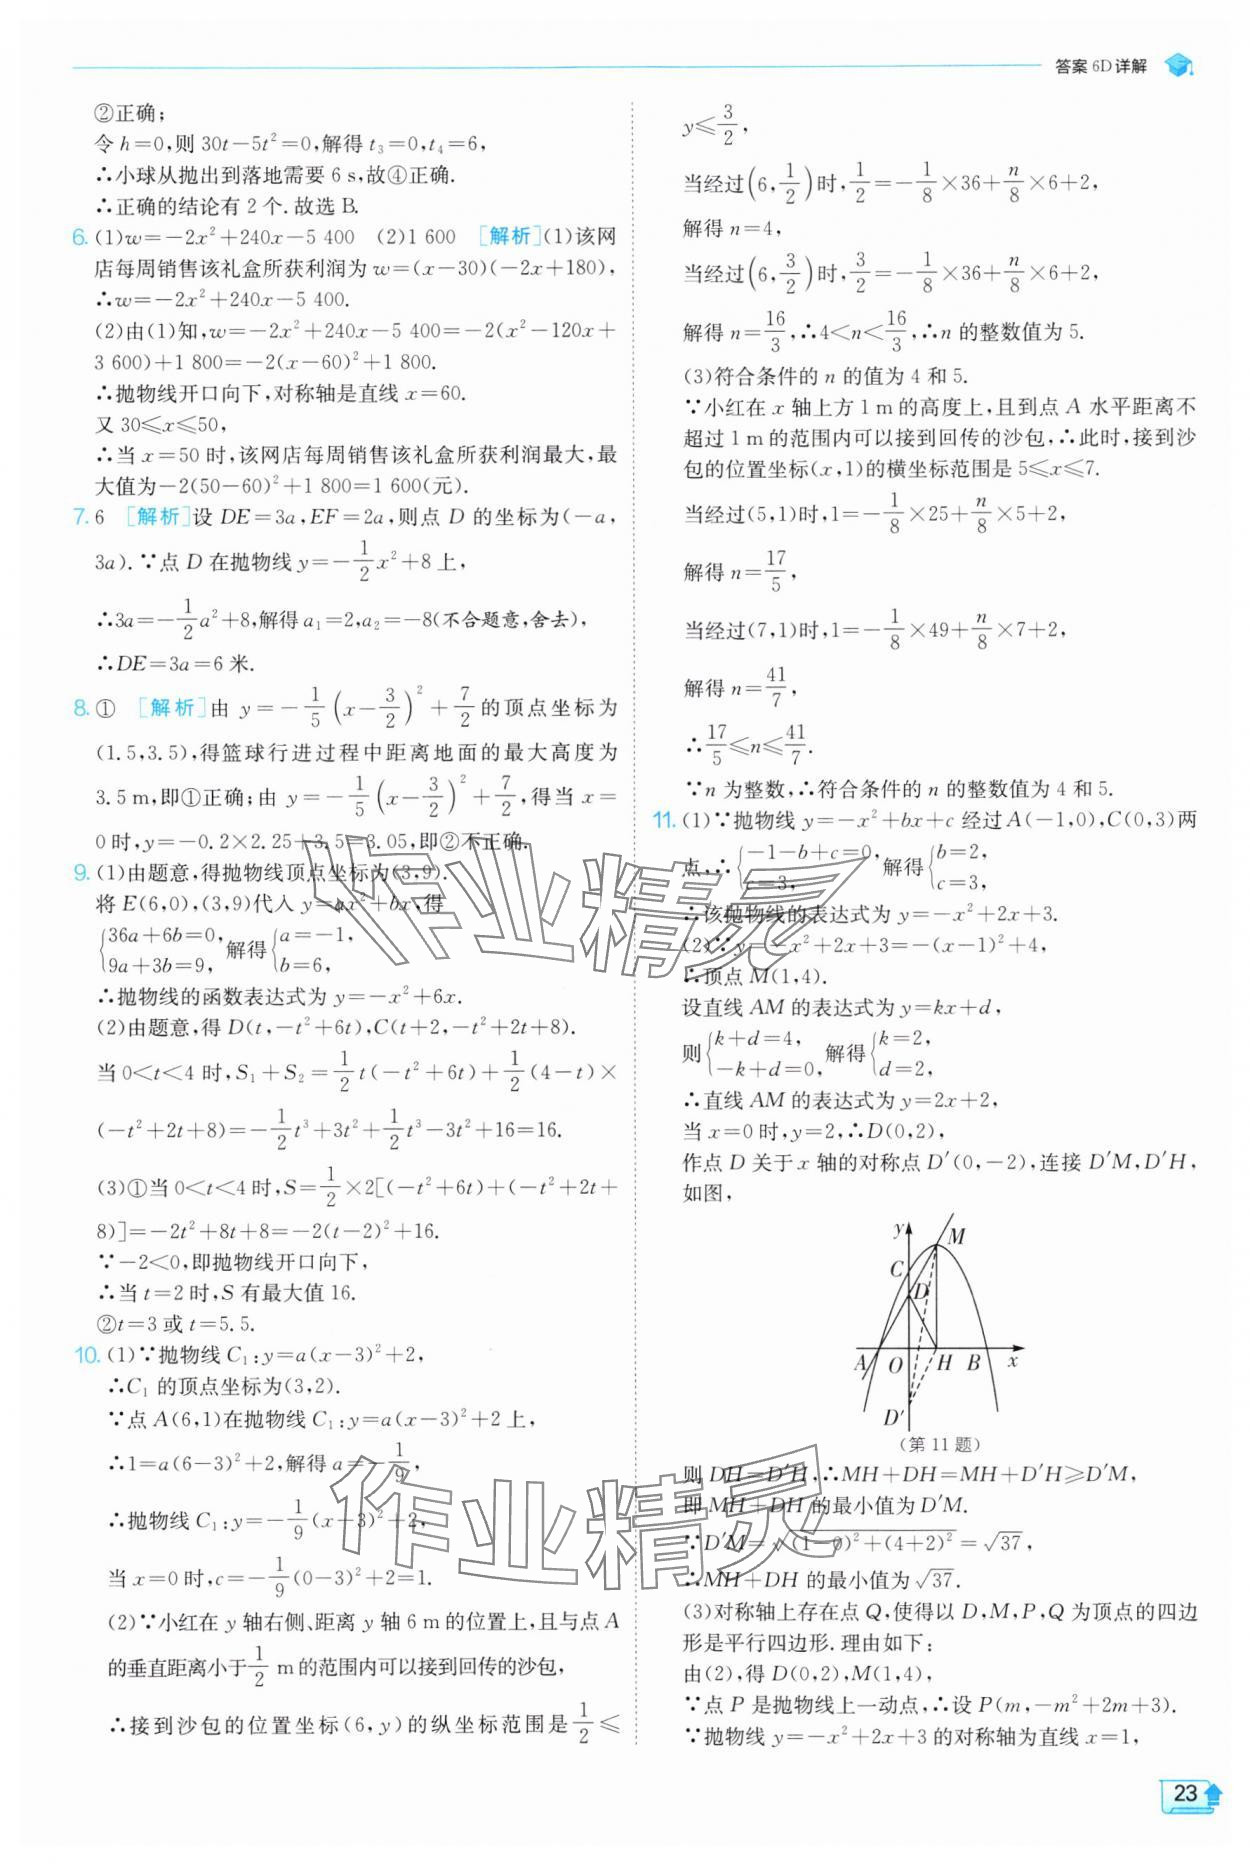 答案 6D 详解
②正确;
令 h=0,则 30t-5t²=0,解得 t₃=0,t₄=6,
∴小球从抛出到落地需要 6 s,故④正确.
∴正确的结论有 2 个.故选 B.
6. (1)w=-2x²+240x-5 400 (2)1 600 [解析](1)该网
店每周销售该礼盒所获利润为 w=(x-30)(-2x+180),
∴w=-2x²+240x-5 400.
(2)由(1)知,w=-2x²+240x-5 400=-2(x²-120x+
3 600)+1 800=-2(x-60)²+1 800.
∴抛物线开口向下,对称轴是直线 x=60.
又 30≤x≤50,
∴当 x=50 时,该网店每周销售该礼盒所获利润最大,最
大值为-2(50-60)²+1 800=1 600(元).
7. 6 [解析]设 DE=3a,EF=2a,则点 D 的坐标为(-a,
3a).∵点 D 在抛物线 y=-1/2x²+8 上,
∴3a=-1/2a²+8,解得 a₁=2,a₂=-8(不合题意,舍去),
∴DE=3a=6 米.
8. ① [解析]由 y=-1/5(x-3/2)²+7/2的顶点坐标为
(1.5,3.5),得篮球行进过程中距离地面的最大高度为
3.5 m,即①正确;由 y=-1/5(x-3/2)²+7/2,得当 x=
0 时,y=-0.2×2.25+3.5=3.05,即②不正确.
9. (1)由题意,得抛物线顶点坐标为(3,9).
将 E(6,0),(3,9)代入 y=ax²+bx,得
{36a+6b=0, 9a+3b=9, 解得{a=-1, b=6,
∴抛物线的函数表达式为 y=-x²+6x.
(2)由题意,得 D(t,-t²+6t),C(t+2,-t²+2t+8).
当 0<t<4 时,S₁+S₂=1/2t(-t²+6t)+1/2(4-t)×
(-t²+2t+8)=-1/2t³+3t²+1/2t³-3t²+16=16.
(3)①当 0<t<4 时,S=1/2×2[(-t²+6t)+(-t²+2t+
8)]=-2t²+8t+8=-2(t-2)²+16.
∵-2<0,即抛物线开口向下,
∴当 t=2 时,S 有最大值 16.
②t=3 或 t=5.5.
10. (1)∵抛物线 C₁:y=a(x-3)²+2,
∴C₁ 的顶点坐标为(3,2).
∵点 A(6,1)在抛物线 C₁:y=a(x-3)²+2 上,
∴1=a(6-3)²+2,解得 a=-1/9,
∴抛物线 C₁:y=-1/9(x-3)²+2,
当 x=0 时,c=-1/9(0-3)²+2=1.
(2)∵小红在 y 轴右侧、距离 y 轴 6 m 的位置上,且与点 A
的垂直距离小于1/2 m 的范围内可以接到回传的沙包,
∴接到沙包的位置坐标(6,y)的纵坐标范围是1/2≤
y≤3/2,
当经过(6,1/2)时,1/2=-1/8×36+n/8×6+2,
解得 n=4,
当经过(6,3/2)时,3/2=-1/8×36+n/8×6+2,
解得 n=16/3,∴4<n<16/3,∴n 的整数值为 5.
(3)符合条件的 n 的值为 4 和 5.
∵小红在 x 轴上方 1 m 的高度上,且到点 A 水平距离不
超过 1 m 的范围内可以接到回传的沙包,∴此时,接到沙
包的位置坐标(x,1)的横坐标范围是 5≤x≤7.
当经过(5,1)时,1=-1/8×25+n/8×5+2,
解得 n=17/5,
当经过(7,1)时,1=-1/8×49+n/8×7+2,
解得 n=41/7,
∴17/5≤n≤41/7.
∵n 为整数,∴符合条件的 n 的整数值为 4 和 5.
11. (1)∵抛物线 y=-x²+bx+c 经过 A(-1,0),C(0,3)两
点,∴{-1-b+c=0, c=3, 解得{b=2, c=3,
∴该抛物线的表达式为 y=-x²+2x+3.
(2)∵y=-x²+2x+3=-(x-1)²+4,
∴顶点 M(1,4).
设直线 AM 的表达式为 y=kx+d,
则{k+d=4, -k+d=0, 解得{k=2, d=2,
∴直线 AM 的表达式为 y=2x+2,
当 x=0 时,y=2,∴D(0,2),
作点 D 关于 x 轴的对称点 D′(0,-2),连接 D′M,D′H,
如图,
y
M
C
D
A O H B x
D′
(第 11 题)
则 DH=D′H,∴MH+DH=MH+D′H≥D′M,
即 MH+DH 的最小值为 D′M.
∵D′M=√((1-0)²+(4+2)²)=√37,
∴MH+DH 的最小值为√37.
(3)对称轴上存在点 Q,使得以 D,M,P,Q 为顶点的四边
形是平行四边形.理由如下:
由(2),得 D(0,2),M(1,4),
∵点 P 是抛物线上一动点,∴设 P(m,-m²+2m+3).
∵抛物线 y=-x²+2x+3 的对称轴为直线 x=1,
23
作业精灵
作业精灵